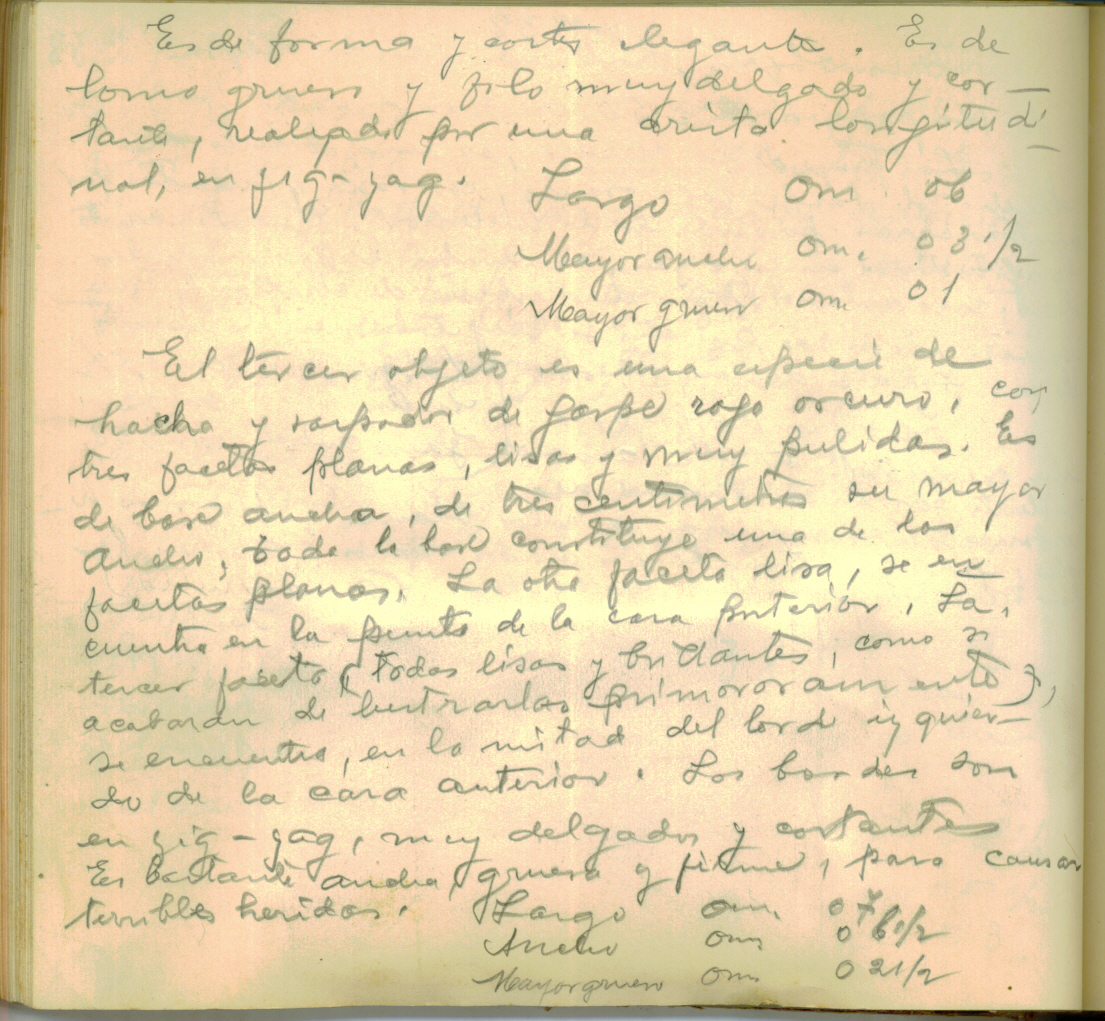 Es de forma y cortes elegante. Es de
lomo grueso y filo muy delgado y cor-
tante, realzado por una arista longitudi-
nal, en zig-zag.
Largo 0m. 06
Mayor ancho 0m. 03 1/2
Mayor grueso 0m. 01
El tercer objeto es una especie de
hacha y raspador de jaspe rojo oscuro, con
tres facetas planas, lisas y muy pulidas. Es
de base ancha, de tres centimetros su mayor
ancho; toda la base constituye una de las
facetas planas. La otra faceta lisa, se en
cuentra en la punta de la cara posterior. La
tercer faceta (todas lisas y brillantes, como si
acabaran de lustrarlas primorosamente),
se encuentra, en la mitad del borde izquier-
do de la cara anterior. Los bordes son
en zig-zag, muy delgados y cortantes
Es bastante ancha, gruesa y firme, para causar
terribles heridas.
Largo 0m. 07
Ancho 0m 06 1/2
Mayor grueso 0m 02 1/2